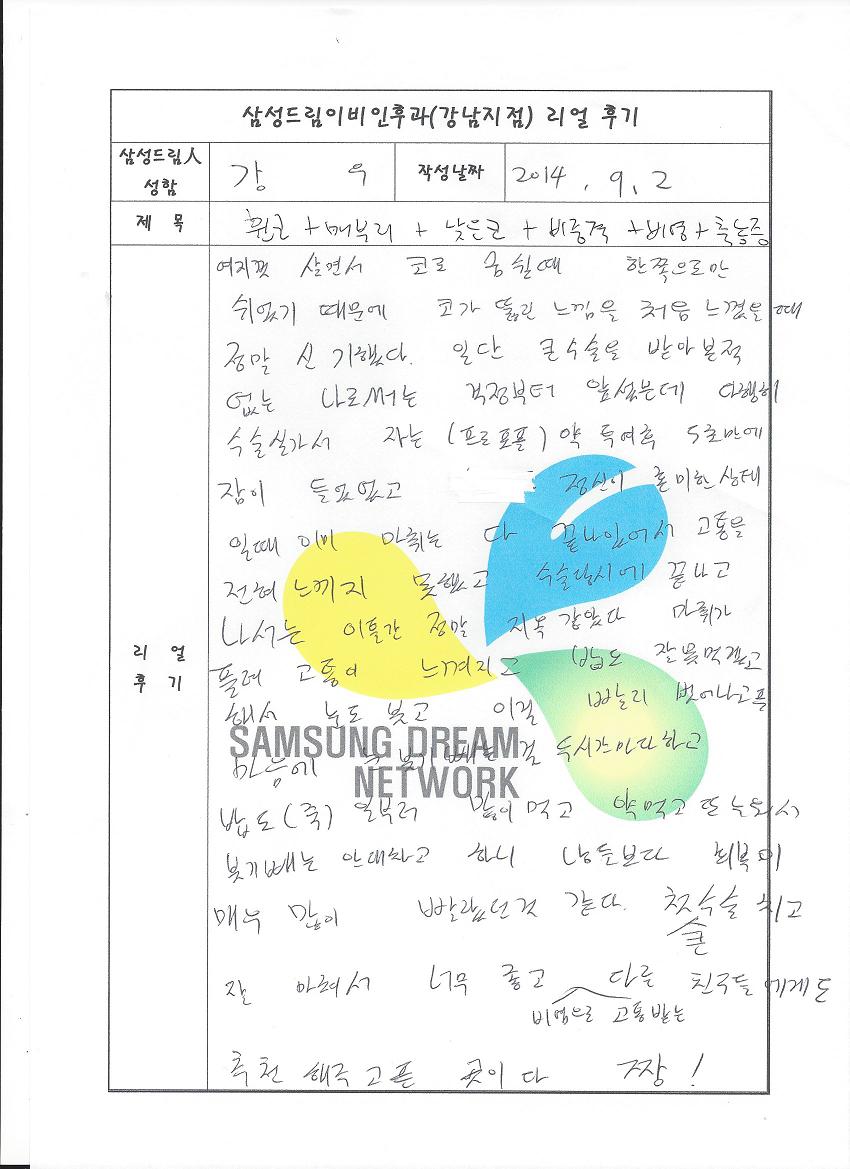 삼성드림이비인후과(강남지점) 리얼 후기
삼성드림人
성함
강 우
작성날짜
2014. 9. 2
제 목
휜코 + 매부리 + 낮은코 + 비중격 + 비염 + 축농증
리 얼
후 기
여지껏 살면서 코로 숨쉴때 한쪽으로만
쉬었기 때문에 코가 뚫린 느낌을 처음 느꼈을 때
정말 신기했다. 일단 큰수술을 받아본적
없는 나로써는 걱정부터 앞섰는데 다행히
수술실가서 자는 (프로포폴) 약 투여후 5초만에
잠이 들었었고 정신이 혼미한 상태
일때 이미 마취는 다 끝나있어서 고통을
전혀 느끼지 못했고 수술당시에 끝나고
나서는 이틀간 정말 지옥 같았다 마취가
풀려 고통이 느껴지고 밥도 잘못먹겠고
해서 눈도 붓고 이걸 빨리 벗어나고픈
SAMSUNG DREAM
NETWORK
마음에 눈 붓기 빼는 걸 두시간마다하고
밥도(죽) 일부러 많이 먹고 약먹고 또 누워서
붓기빼는 안대하고 하니 남들보다 회복이
매우 많이 빨랐던것 같다. 첫 큰 수술 치고
잘 아려서 너무 좋고 비염으로 고통받는 다른 친구들에게도
추천 해주고픈 곳이다 짱!